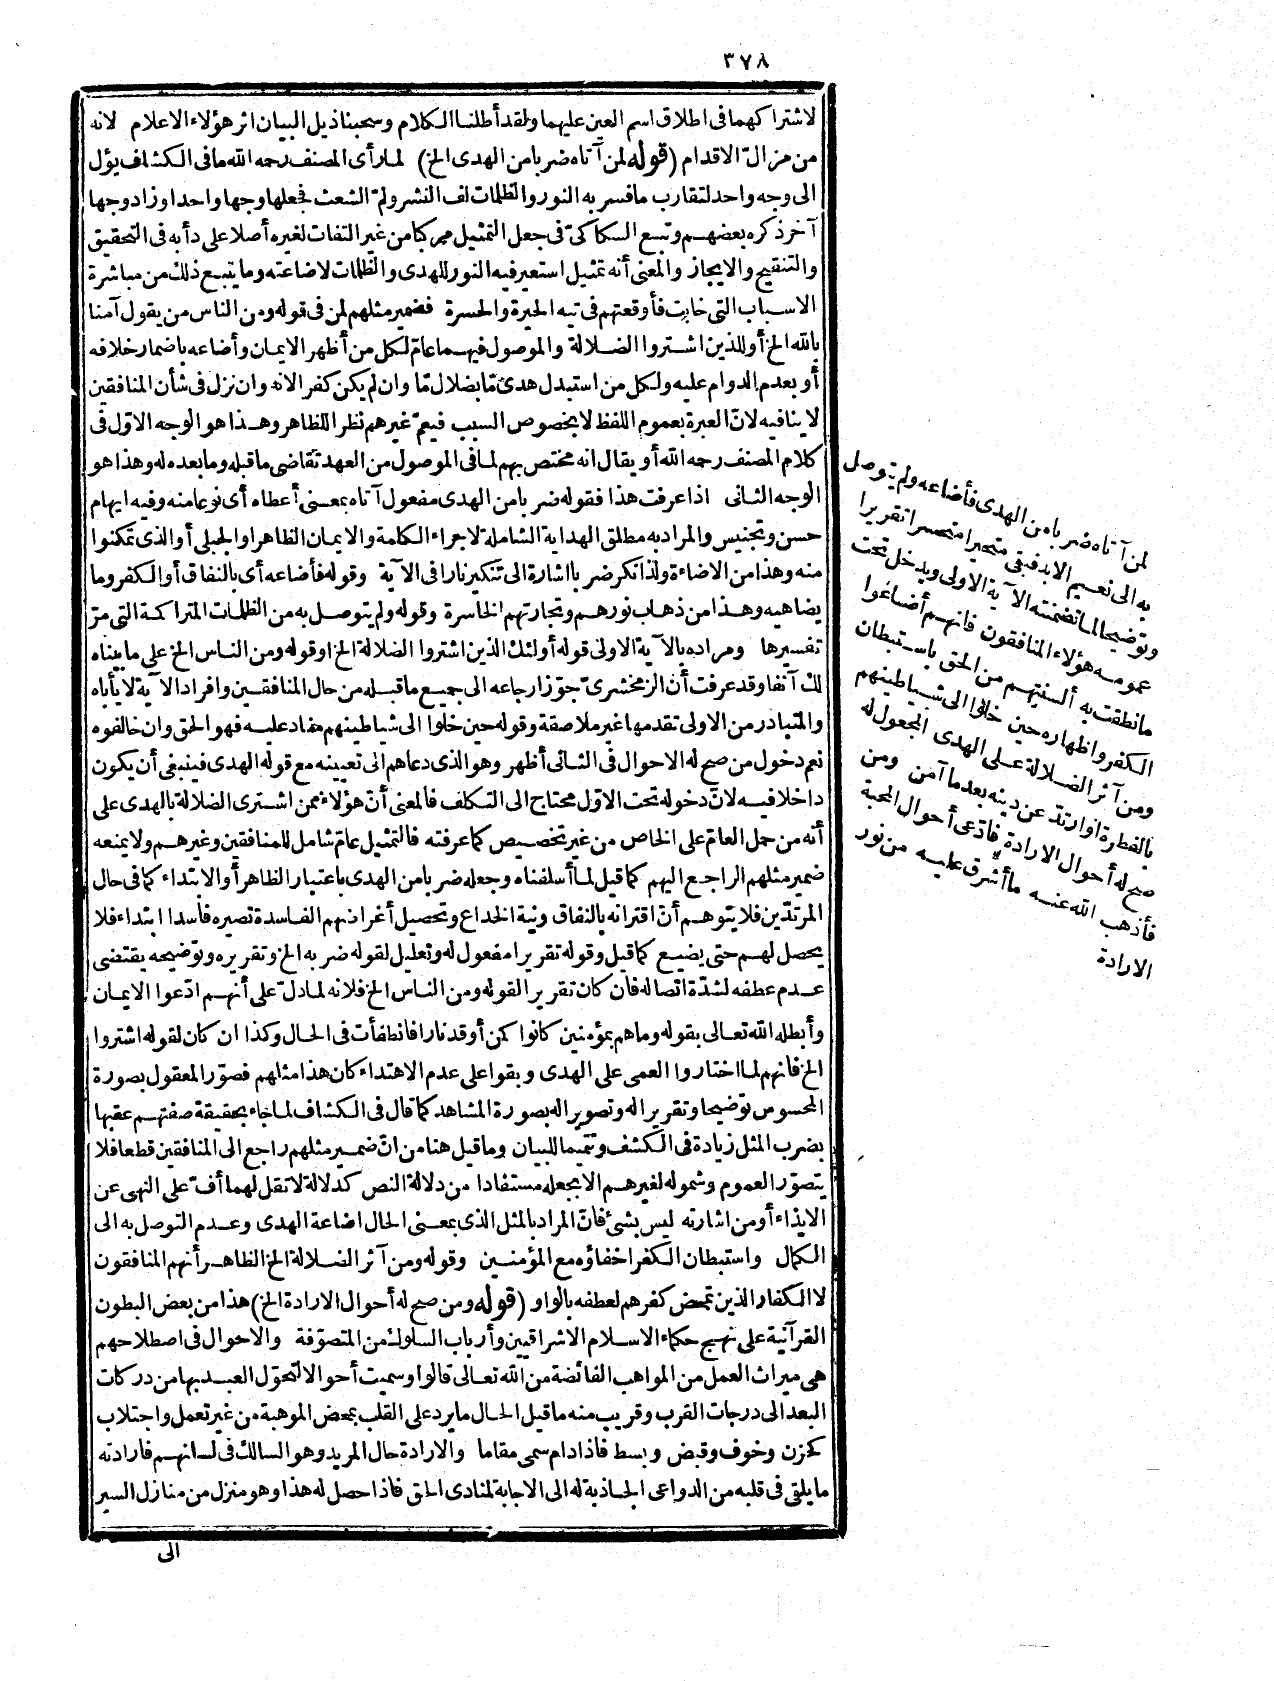 ٣٧٨
لاشتراكهما فى اطلاق اسم العين عليهما ولقد أطلنا الكلام وسحبنا ذيل البيان اثر هؤلاء الاعلام لانه
من مزالّ الاقدام (قوله لمن آتاه ضربا من الهدى الخ) لما رأى المصنف رحمه الله ما فى الكشاف يؤل
الى وجه واحد لتقارب ما فسر به النور والظلمات لف النشر ولمّ الشعث فجعلها وجها واحدا وزاد وجها
آخر ذكره بعضهم وتبع السكاكىّ فى جعل التمثيل مركبا من غير التفات لغيره أصلا على دأبه فى التحقيق
والتنقيح والايجاز والمعنى أنه تمثيل استعير فيه النور للهدى والظلمات لاضاعته وما يتبع ذلك من مباشرة
الاسباب التى خابت فأوقعتهم فى تيه الحيرة والحسرة فضمير مثلهم لمن فى قوله ومن الناس من يقول آمنا
بالله الخ أو للذين اشتروا الضلالة والموصول فيهما عامّ لكل من أظهر الايمان وأضاعه باضمار خلافه
أو بعدم الدوام عليه ولكل من استبدل هدى مّا بضلال مّا وان لم يكن كفرا لانه وان نزل فى شأن المنافقين
لا ينافيه لانّ العبرة بعموم اللفظ لا بخصوص السبب فيعمّ غيرهم نظرا للظاهر وهذا هو الوجه الاوّل فى
كلام المصنف رحمه الله أو يقال انه مختص بهم لما فى الموصول من العهد تقاضى ما قبله وما بعده له وهذا هو
الوجه الثانى اذا عرفت هذا فقوله ضربا من الهدى مفعول آتاه بمعنى أعطاه أى نوعا منه وفيه ايهام
حسن وتجنيس والمراد به مطلق الهداية الشاملة لاجراء الكلمة والايمان الظاهر أو الجبلى أو الذى تمكنوا
منه وهذا من الاضاءة ولذا نكر ضربا اشارة الى تنكير نارا فى الآية وقوله فأضاعه أى بالنفاق أو الكفر وما
يضاهيه وهذا من ذهاب نورهم وتجارتهم الخاسرة وقوله ولم يتوصل به من الظلمات المتراكمة التى مرّ
تفسيرها ومراده بالآية الاولى قوله أولئك الذين اشتروا الضلالة الخ أو قوله ومن الناس الخ على ما بيناه
لك آنفا وقد عرفت أن الزمخشرىّ جوّز ارجاعه الى جميع ما قبله من حال المنافقين وافراد الآية لا يأباه
والمتبادر من الاولى تقدمها غير ملاصقة وقوله حين خلوا الى شياطينهم مفاد عليه فهو الحق وان خالفوه
نعم دخول من صح له الاحوال فى الثانى أظهر وهو الذى دعاهم الى تعيينه مع قوله الهدى فينبغى أن يكون
داخلا فيه لانّ دخوله تحت الاوّل محتاج الى التكلف فالمعنى أنّ هؤلاء ممن اشترى الضلالة بالهدى على
أنه من حمل العامّ على الخاص من غير تخصيص كما عرفته فالتمثيل عامّ شامل للمنافقين وغيرهم ولا يمنعه
ضمير مثلهم الراجع اليهم كما قيل لما أسلفناه وجعله ضربا من الهدى باعتبار الظاهر أو الابتداء كما فى حال
المرتدّين فلا يتوهم أنّ اقترانه بالنفاق ونية الخداع وتحصيل أغراضهم الفاسدة تصيره فاسدا ابتداء فلا
يحصل لهم حتى يضيع كما قيل وقوله تقريرا مفعول له وتعليل لقوله ضربه الخ وتقريره وتوضيحه يقتضى
عدم عطفه لشدّة اتصاله فان كان تقريرا لقوله ومن الناس الخ فلانه لما دلّ على أنهم ادّعوا الايمان
وأبطله الله تعالى بقوله وما هم بمؤمنين كانوا كمن أوقد نارا فانطفأت فى الحال وكذا ان كان لقوله اشتروا
الخ فانهم لما اختاروا العمى على الهدى وبقوا على عدم الاهتداء كان هذا مثلهم فصوّر المعقول بصورة
المحسوس توضيحا وتقريرا له وتصويرا له بصورة المشاهد كما قال فى الكشاف لما جاء بحقيقة صفتهم عقبها
بضرب المثل زيادة فى الكشف وتتميما للبيان وما قيل هنا من انّ ضمير مثلهم راجع الى المنافقين قطعا فلا
يتصوّر العموم وشموله لغيرهم الا بجعله مستفادا من دلالة النص كدلالة لا تقل لهما أفّ على النهى عن
الايذاء أو من اشارته ليس بشئ فانّ المراد بالمثل الذى بمعنى الحال اضاعة الهدى وعدم التوصل به الى
الكمال واستبطان الكفر اخفاؤه مع المؤمنين وقوله ومن آثر الضلالة الخ الظاهر أنهم المنافقون
لا الكفار الذين تمحض كفرهم لعطفه بالواو (قوله ومن صح له أحوال الارادة الخ) هذا من بعض البطون
القرآنية على نهج حكماء الاسلام الاشراقيين وأرباب السلوك من المتصوّفة والاحوال فى اصطلاحهم
هى ميراث العمل من المواهب الفائضة من الله تعالى قالوا وسميت أحوالا لتحوّل العبد بها من دركات
البعد الى درجات القرب وقريب منه ما قيل الحال ما يرد على القلب بمحض الموهبة من غير تعمل واجتلاب
كحزن وخوف وقبض وبسط فاذا دام سمى مقاما والارادة حال المريد وهو السالك فى لسانهم فارادته
ما يلقى فى قلبه من الدواعى الجاذبة له الى الاجابة لمنادى الحق فاذا حصل له هذا وهو منزل من منازل السير
الى
لمن آتاه ضربا من الهدى فأضاعه ولم يتوصل
به الى نعيم الابد فبقى متحيرا متحسرا تقريرا
وتوضيحا لما تضمنته الآية الاولى ويدخل تحت
عمومه هؤلاء المنافقون فانهم أضاعوا
ما نطقت به ألسنتهم من الحق باستبطان
الكفر واظهاره حين خلوا الى شياطينهم
ومن آثر الضلالة على الهدى المجعول له
بالفطرة أو ارتدّ عن دينه بعدما آمن ومن
صح له أحوال الارادة فادّعى أحوال المحبة
فأذهب الله عنه ما أشرق عليه من نور
الارادة